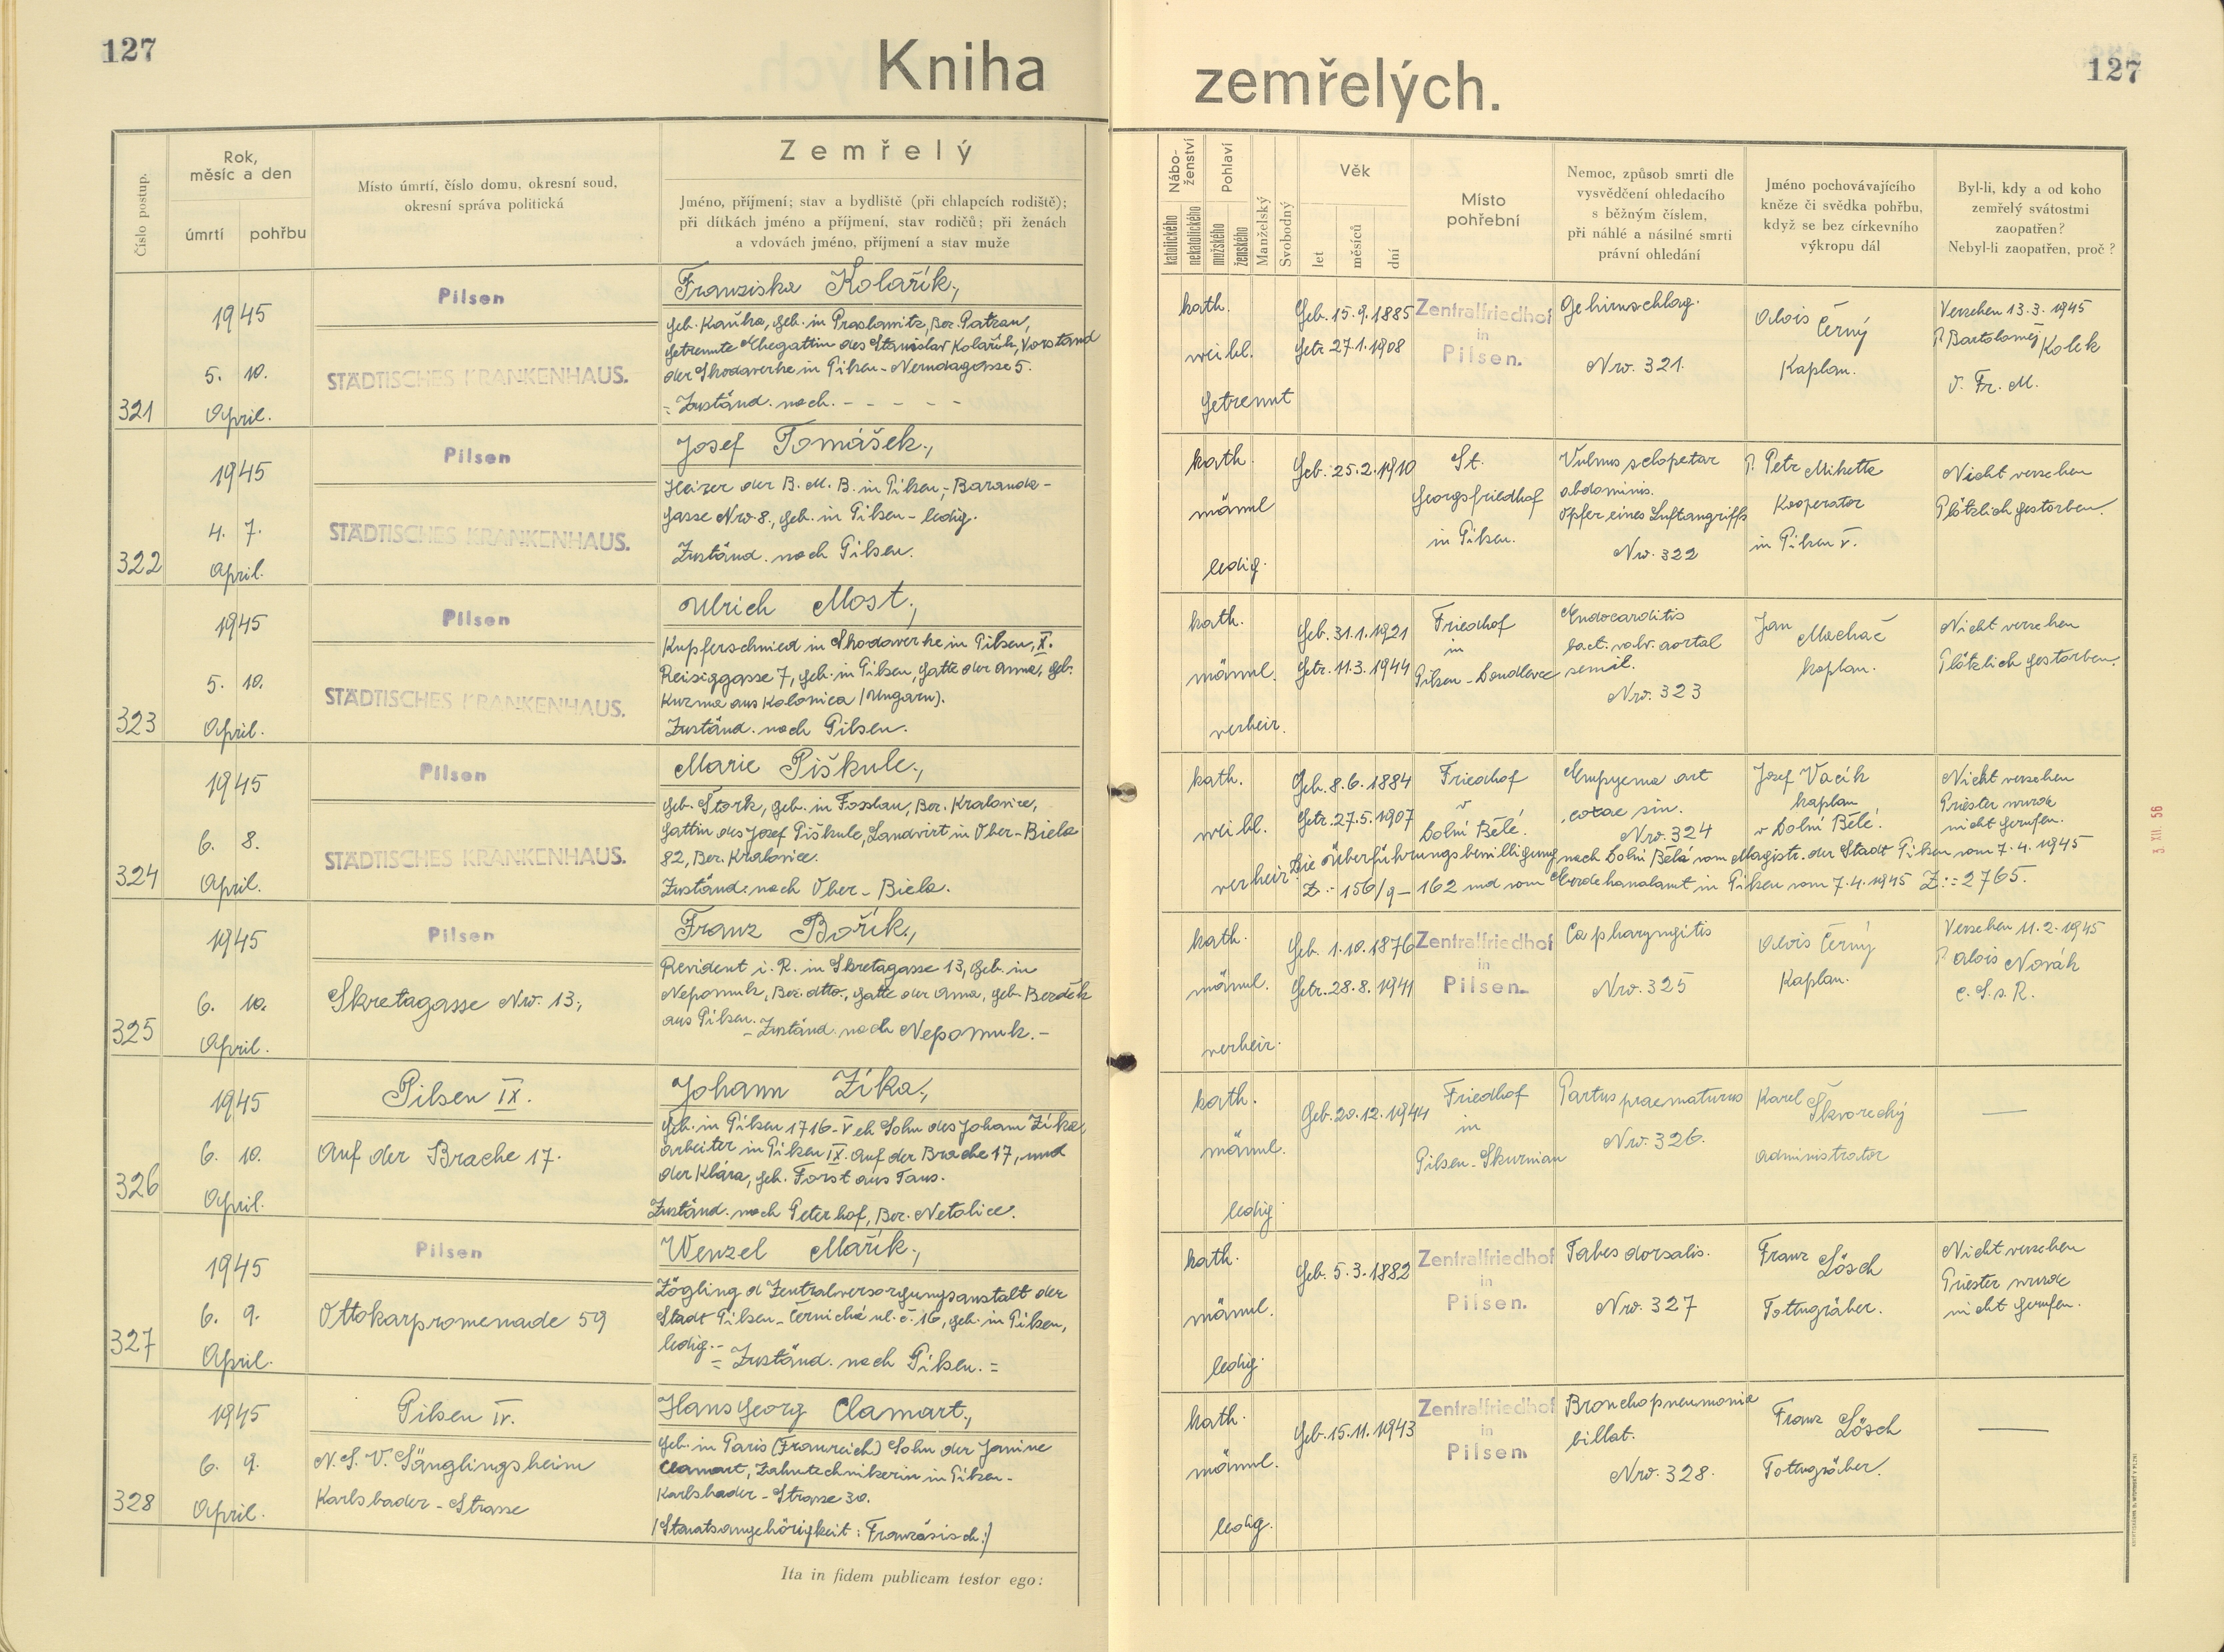 127
Kniha
zemřelých.
127
Číslo postup.
Rok,
měsíc a den
úmrtí
pohřbu
Místo úmrtí, číslo domu, okresní soud,
okresní správa politická
Zemřelý
Jméno, příjmení; stav a bydliště (při chlapcích rodiště);
při dítkách jméno a příjmení, stav rodičů; při ženách
a vdovách jméno, příjmení a stav muže
Nábo-
ženství
katolického
nekatolického
Pohlaví
mužského
ženského
Manželský
Svobodný
Věk
let
měsíců
dní
Místo
pohřební
Nemoc, způsob smrti dle
vysvědčení ohledacího
s běžným číslem,
při náhlé a násilné smrti
právní ohledání
Jméno pochovávajícího
kněze či svědka pohřbu,
když se bez církevního
výkropu dál
Byl-li, kdy a od koho
zemřelý svátostmi
zaopatřen?
Nebyl-li zaopatřen, proč?
321
1945
5. 10.
April.
Pilsen
STÄDTISCHES KRANKENHAUS.
Franziska Kolařík,
geb. Kaúba, geb. in Praslawitz, Bez. Patzau,
getrennte Ehegattin des Stanislav Kolařík, Vorstand
der Skodawerke in Pilsen - Nerudagasse 5.
= Zuständ. nach. - - - - -
kath.
weibl.
getrennt
Geb. 15.9.1885
Getr. 27.1.1908
Zentralfriedhof
in
Pilsen.
Gehirnschlag.
Nro. 321.
Alois Černý
Kaplan.
Versehen 13.3.1945
P. Bartoloměj Kolek
O. Fr. M.
322
1945
4. 7.
April.
Pilsen
STÄDTISCHES KRANKENHAUS.
Josef Tomášek,
Heizer der B. M. B. in Pilsen, - Baranda-
gasse Nro 8., geb. in Pilsen - ledig.
Zuständ. nach Pilsen.
kath.
männl
ledig.
Geb. 25.2.1910
St.
Georgsfriedhof
in Pilsen.
Vulnus sclopetar
abdominis.
Opfer eines Luftangriffs
Nro. 322
P. Petr Mihetta
Kooperator
in Pilsen V.
Nicht versehen
Plötzlich gestorben.
323
1945
5. 10.
April.
Pilsen
STÄDTISCHES KRANKENHAUS.
Ulrich Most,
Kupferschmied in Skodawerke in Pilsen, X.
Reisiggasse 7, geb. in Pilsen, Gatte der Anna, geb.
Kuzma aus Kolonica (Ungarn).
Zuständ. nach Pilsen.
kath.
männl.
verheir.
Geb. 31.1.1921
Getr. 11.3.1944
Friedhof
in
Pilsen - Doudlevec
Endocarditis
bact. valv. aortal
semil.
Nro. 323
Jan Machač
kaplan.
Nicht versehen
Plötzlich gestorben.
324
1945
6. 8.
April.
Pilsen
STÄDTISCHES KRANKENHAUS.
Marie Piškule,
geb. Štork, geb. in Fosslau, Bez. Kralovice,
Gattin des Josef Piškule, Landwirt in Ober-Biela
82, Bez. Kralovice.
Zuständ. nach Ober-Biela.
kath.
weibl.
verheir.
Geb. 8.6.1884
Getr. 27.5.1907
Friedhof
v
Dolní Bělé.
Empyema art
coxae sin.
Nro. 324
Josef Vacík
kaplan
v Dolní Bělé.
Nicht versehen
Priester wurde
nicht gerufen.
Die Überführungsbewilligung nach Dolní Bělá vom Magistr. der Stadt Pilsen vom 7.4.1945
Z.- 156/9-162 und vom Merdekanalamt in Pilsen vom 7.4.1945 Z:= 2765.
325
1945
6. 10.
April.
Pilsen
Skretagasse Nro. 13,
Franz Bořík,
Revident i. R. in Skretagasse 13, geb. in
Nepomuk, Bez. dtto., Gatte der Anna, geb. Bezděk
aus Pilsen. - Zuständ. nach Nepomuk. -
kath.
männl.
verheir.
Geb. 1.10.1876
Getr. 28.8.1941
Zentralfriedhof
in
Pilsen.
Ca pharyngitis
Nro. 325
Alois Černý
Kaplan.
Versehen 11.2.1945
P. Alois Novák
C. S. s. R.
326
1945
6. 10.
April.
Pilsen IX.
Auf der Brache 17.
Johann Zíka,
geb. in Pilsen 1716-V eh Sohn des Johann Zíka,
Arbeiter in Pilsen IX. Auf der Brache 17, und
der Klára, geb. Forst aus Taus.
Zuständ. nach Peterhof, Bez. Netolice.
kath.
männl.
ledig
Geb. 20.12.1944
Friedhof
in
Pilsen - Skurnian
Partus praematurus
Nro. 326.
Karel Škvorecký
administrator
—
327
1945
6. 9.
April.
Pilsen
Ottokarpromenade 59
Wenzel Mařík,
Zögling d Zentralversorgungsanstalt der
Stadt Pilsen - Černická ul. č. 16, geb. in Pilsen,
ledig. - = Zuständ. nach Pilsen. =
kath.
männl.
ledig.
Geb. 5.3.1882
Zentralfriedhof
in
Pilsen.
Tabes dorsalis.
Nro. 327
Franz Lösch
Tottngräber.
Nicht versehen
Priester wurde
nicht gerufen.
328
1945
6. 9.
April.
Pilsen IV.
N. S. V. Säuglingsheim
Karlsbader - Strasse
Hans Georg Clamart,
geb. in Paris (Franreich) Sohn der Janine
Clamart, Zahntechnikerin in Pilsen-
Karlsbader - Strasse 30.
/Staatsangehörigkeit: Französisch:/
kath.
männl.
ledig.
Geb. 15.11.1943
Zentralfriedhof
in
Pilsen
Bronchopneumonia
billat.
Nro. 328.
Franz Lösch
Tottngräber.
—
Ita in fidem publicam testor ego:
3 XII. 56